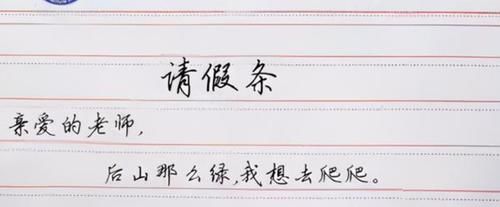 请假条
亲爱的老师,
后山那么绿,我想去爬爬。